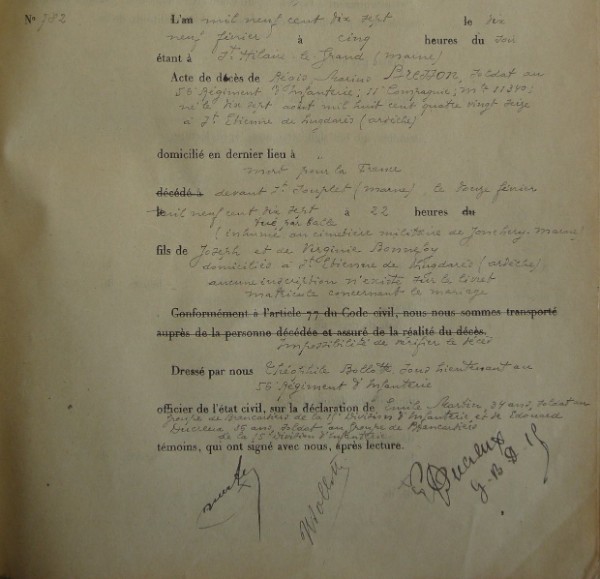 No 782
L'an mil neuf cent dix sept le dix
neuf février à cinq heures du soir
étant à St Hilaire-le-Grand (marne)
Acte de décès de Régis Marius Bresson, soldat au
56 Régiment d'Infanterie; 11e Compagnie; mle 11240;
né le dix sept août mil huit cent quatre vingt seize
à St Etienne de Lugdarès (ardèche)
domicilié en dernier lieu à
mort pour la France
décédé à devant St Souplet (marne), le quinze février
le mil neuf cent dix sept à 22 heures du
tué par balle
(inhumé au cimetière militaire de Jonchery. marne)
fils de Joseph et de Virginie
domiciliés à St Etienne de Lugdarès (ardèche)
aucune inscription n'existe sur le livret
matricule concernant le mariage
Conformément à l'article 77 du Code civil, nous nous sommes transporté
auprès de la personne décédée et assuré de la réalité du décès.
Impossibilité de vérifier le décès
Dressé par nous Théophile Bollotte, sous lieutenant au
56 Régiment d'Infanterie
officier de l'état civil, sur la déclaration de Emile Martin, 39 ans, soldat au
groupe de Brancardiers de la 15 Division d'Infanterie et de Edouard
Ducreux 39 ans, soldat au Groupe de Brancardiers
de la 15 Division d'Infanterie
témoins, qui ont signé avec nous, après lecture.
Bollotte
E Ducreux
G. B. D. 15